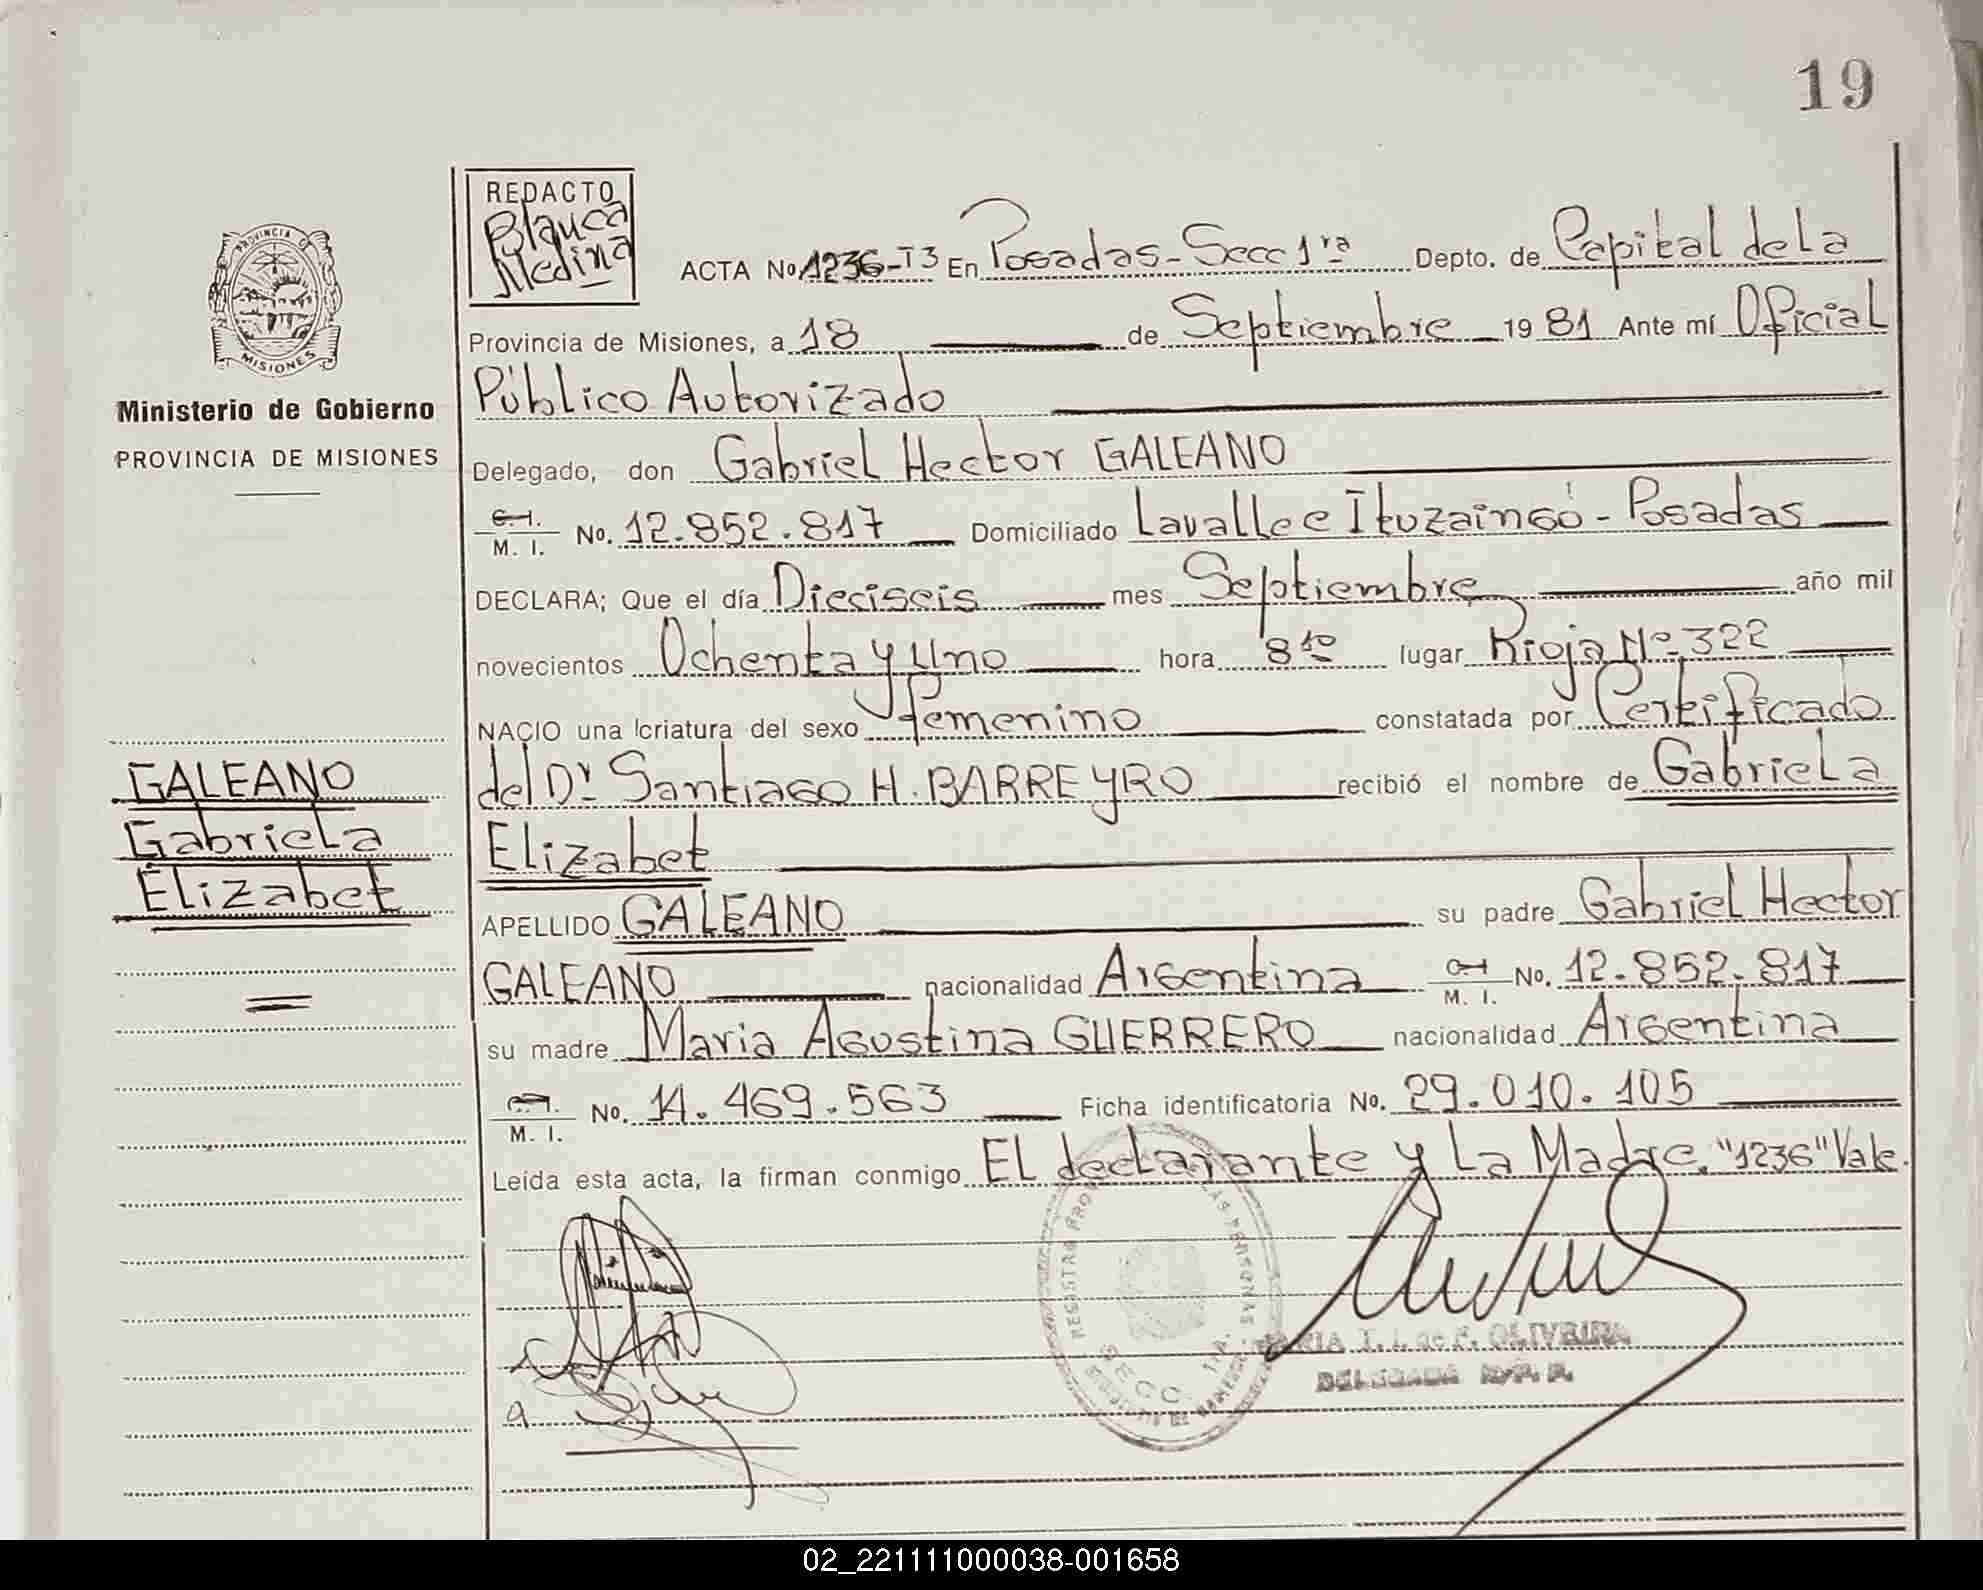 19
REDACTO
Blanca
Medina
PROVINCIA DE
MISIONES
Ministerio de Gobierno
PROVINCIA DE MISIONES
ACTA No. 1236-T3 En Posadas-Secc 1ra Depto. de Capital de La
Provincia de Misiones, a 18 de Septiembre 1981 Ante mí Oficial
Público Autorizado
Delegado, don Gabriel Hector GALEANO
C.I. M. I. No. 12.852.817 Domiciliado Lavalle e Ituzaingó - Posadas
DECLARA; Que el día Dieciseis mes Septiembre año mil
novecientos Ochenta y Uno hora 8 10 lugar Rioja Nº 322
NACIO una criatura del sexo femenino constatada por Certificado
del Dr Santiago H. BARREYRO recibió el nombre de Gabriela
Elizabet
APELLIDO GALEANO su padre Gabriel Hector
GALEANO nacionalidad Argentina C.I. M. I. No. 12.852.817
su madre Maria Agustina GUERRERO nacionalidad Argentina
C.I. M. I. No. 14.469.563 Ficha identificatoria No. 29.010.105
Leída esta acta, la firman conmigo El declarante y La Madre, "1236" Vale.
GALEANO
Gabriela
Elizabet
REGISTRO PERSONAS
SECC. 1RA.
MARIA T. I. de F. OLIVEIRA
DELEGADA R.P.P.
02_221111000038-001658